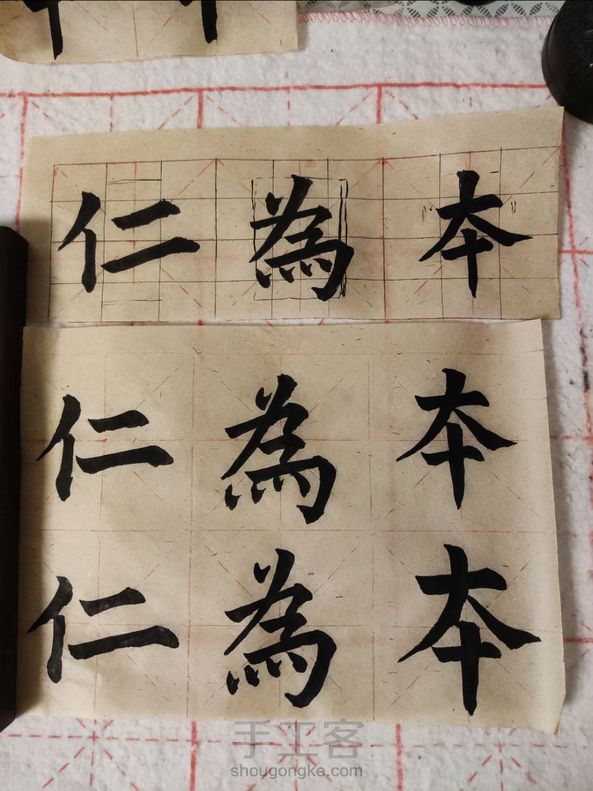 仁為本
仁為本
仁為本
手工客
shougongke.com